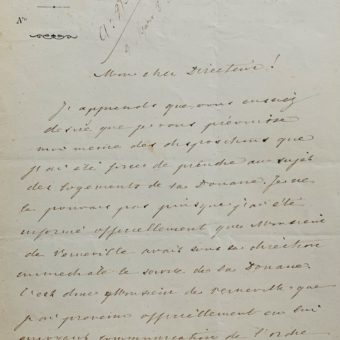 No
Mon cher Directeur!
J'apprends que vous eussiez
desiré que je vous prévinsse
moi même des dispositions que
j'ai été forcé de prendre au sujet
des logements de la Douane. Je ne
le pouvais pas puisque j'ai été
informé officiellement que Monsieur
de Verneville avait sous sa direction
immédiate le service de la Douane.
C'est donc Monsieur de Verneville que
j'ai prévenu officiellement en lui
communication de l'ordre